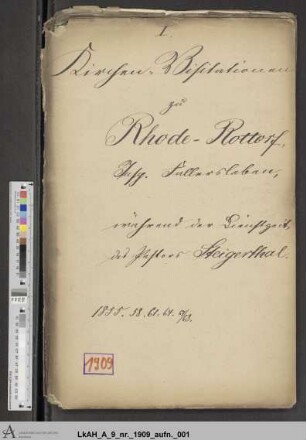 I.
Kirchen-Visitationen
zu
Rhode-Rottorf,
Insp. Fallersleben,
während der Dienstzeit
des Pastors Steigerthal.
1855. 58. 61. 64.
1909
LkAH_A_9_nr._1909_aufn._001